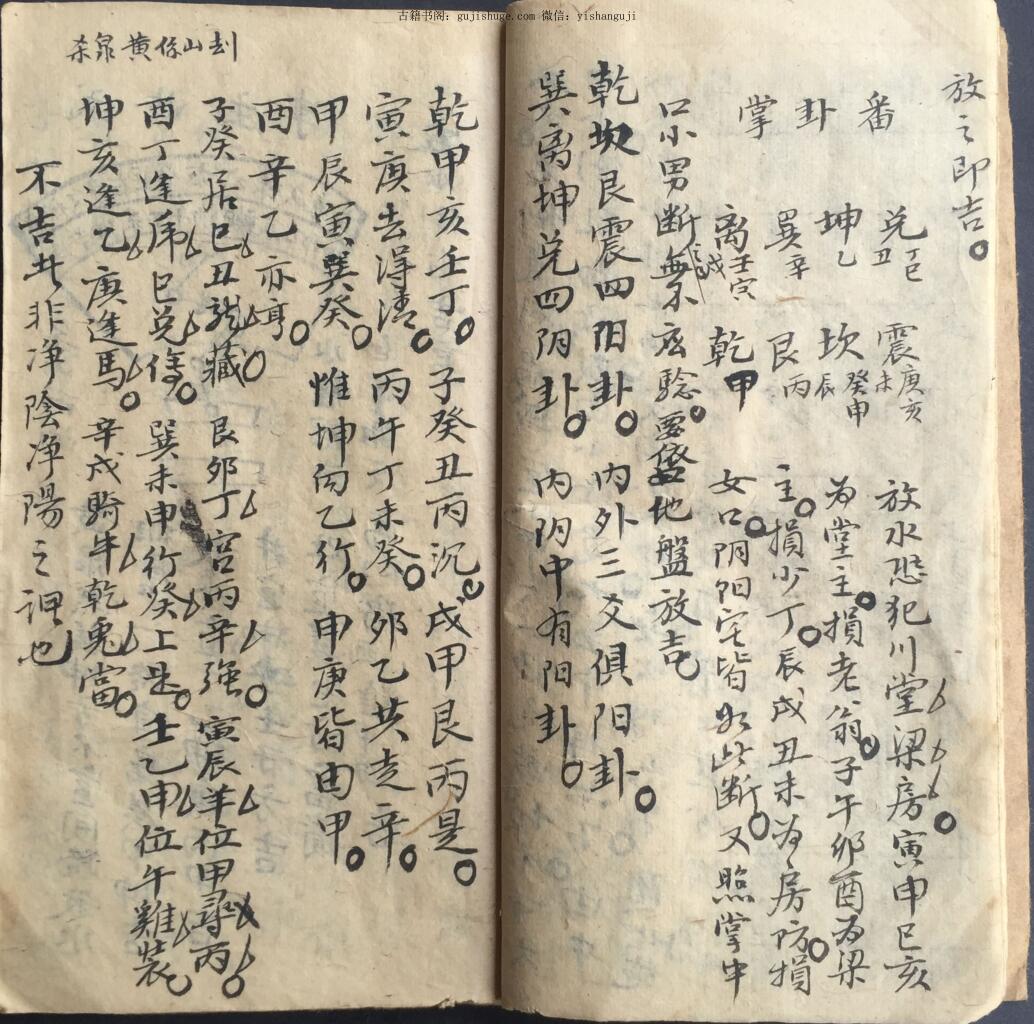 古籍书阁：gujishuge.com 微信：yishanguji
放之即吉。
番卦掌
兑丁巳丑 震庚亥未 放水恐犯川堂梁房寅申巳亥
坤乙 坎癸申辰 为堂主。損老翁。子午卯酉为梁
巽辛 艮丙 主。損少丁。辰戌丑未为房防損
离壬寅戌 乾甲 女口。阴阳宅皆如此断。又照掌中
口小男断無不应驗。要依地盤放吉。
乾坎艮震四阳卦。内外三爻俱阳卦。
巽离坤兑四阴卦。内阴中有阳卦。
杀泉黄係山刦
乾甲亥壬丁。子癸丑丙沉。戌甲艮丙是。
寅庚去得清。丙午丁未癸。卯乙共走辛。
甲辰寅巽癸。惟坤向乙行。申庚皆由甲。
酉辛乙亦亨。
子癸居巳丑龍藏。艮卯丁宫丙辛強。寅辰羊位甲尋丙。
酉丁逢虎巳兑侍。巽未申行癸上是。壬乙申位午雞裝。
坤亥逢乙庚逢馬。辛戌騎牛乾兎當。
不吉此非净陰净陽之理也